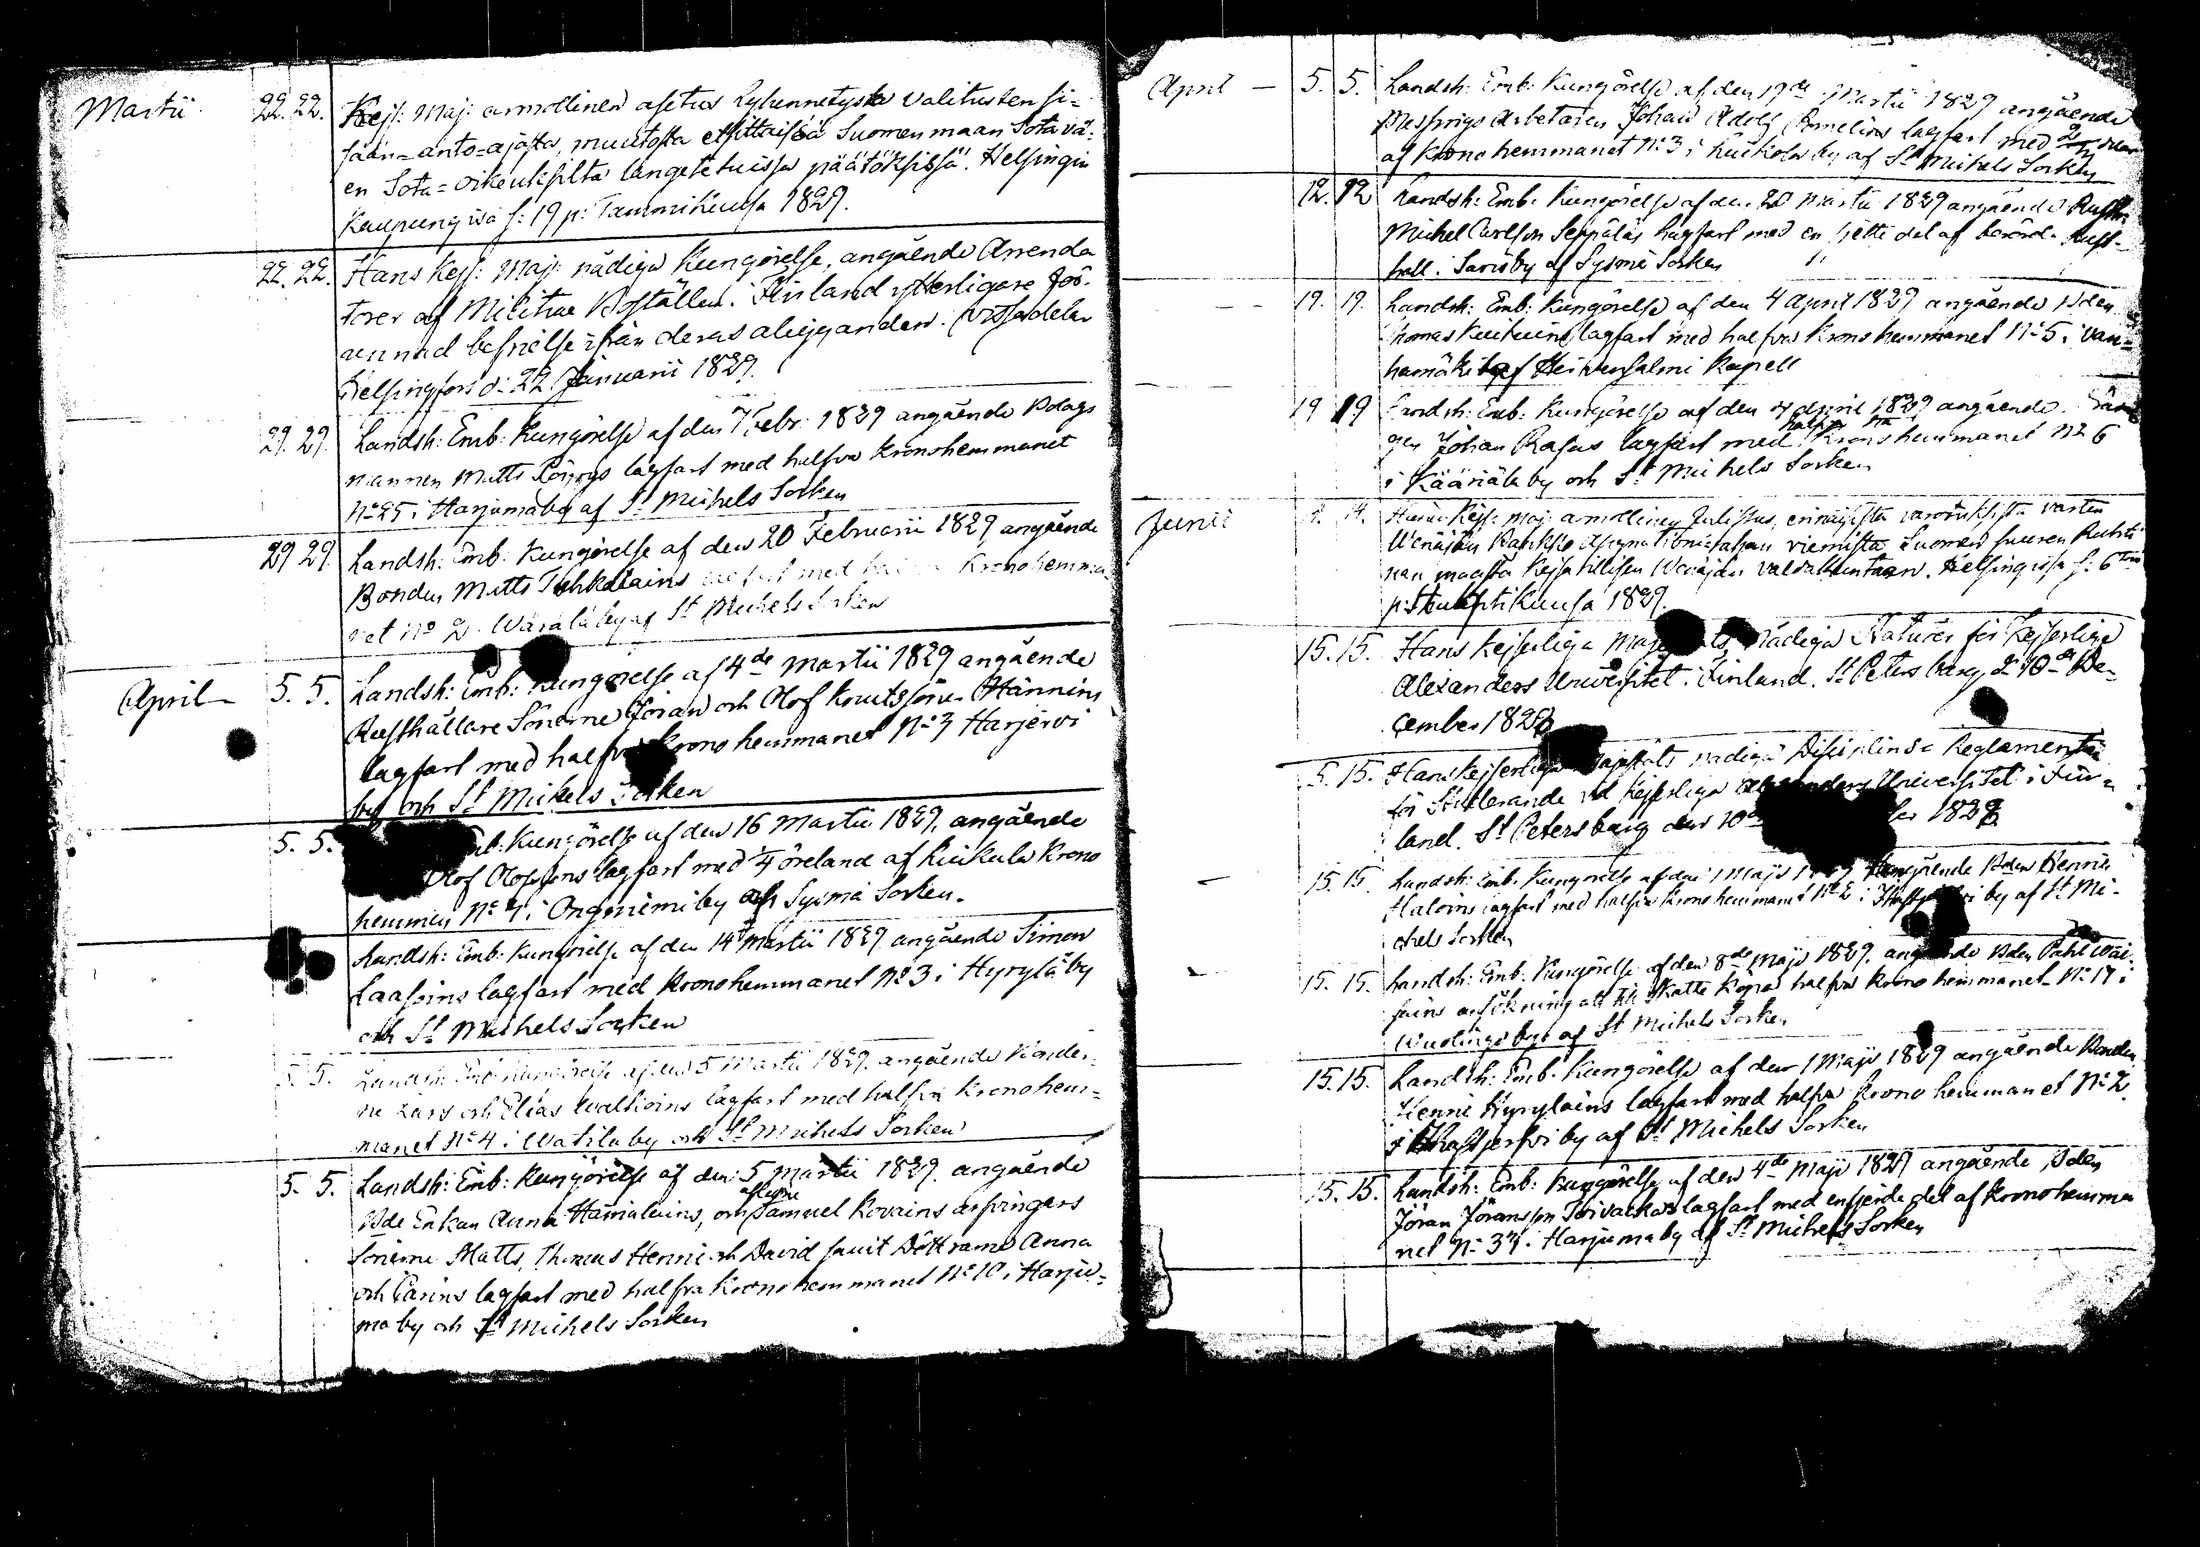 Martii 22. 22. Kejs: Maj: armollinen asetus lyhennetystä valitusten si=
sään=anto=ajasta, muutosta etsittaissä Suomenmaan Sotavä=
en Sota=oikeuksilta langetetuissa päätöksissä. Helsingin
Kaupungissa s: 19 p: Tammikuusa 1829.
22. 22. Hans Kejs: Maj: nådiga Kungörelse, angående Arrenda
torer af Militiae Boställen i Finland ytterligare för=
unnad befrielse ifrån deras åligganden. vissa delar
Helsingfors d: 22 Januarii 1829.
29. 29. Landsh: Emb: Kungörelse af den 7 Febr: 1829 angående Bolags
mannen Matts Pöyrys lagfart med halfva Kronohemmanet
No 25 i Harjumaby af St Michels Sorken
29 29. Landsh: Emb: Kungörelse af den 20 Februarii 1829 angående
Bonden Matts Tuhkalains lagfart med halfva Kronohemma
net No 2 Wäräläby af St Michels Sorken
April 5. 5. Landsh: Emb: Kungörelse af 4de Martii 1829 angående
Rusthållare Sönerne Jöran och Olof Knutssöner Hännins
lagfart med halfva Krono hemmanet No 3 Harjervi
by och St Michels Sorken
5. 5. Emb: Kungörelse af den 16 Martii 1829, angående
Olof Olofsons lagfart med 4 öreland af Krono
hemman No 4 i Ongeniemi by och Sysmä Sorken.
Landsh: Emb: Kungörelse af den 14 Martii 1829 angående Simon
Laasoins lagfart med Kronohemmanet No 3 i Hyryläby
och St Michels Sorken
5. 5. Landsh: Emb: Kungörelse af den 5 Martii 1829, angående Bönder
ne Lars och Elias Walkoins lagfart med halfva Kronohem=
manet No 4 i Watilaby och St Michels Sorken
5. 5. Landsh: Emb: Kungörelse af den 5 Martii 1829. angående
Bde Enkan Anna Hämäläins, och aflidne Samuel Kovains arfvingars
Sönerne Matts, Thomas Henric och David samt Döttrarne Anna
och Carins lagfart med halfva Kronohemmanet No 10 i Harju=
ma by och St Michels Sorken
April — 5. 5. Landsh: Emb: Kungörelse af den 17de Martii 1829 angående
Arbetaren Johan Adolf lagfart med
af Krono hemmanet No 3 i by af St Michels Sorken
12. 12 Landsh: Emb: Kungörelse af den 20 Martii 1829 angående Rusth:
Michel Carlson Seppäläs lagfart med en sjette del af Rust=
håll i Särkby af Sysmä Sorken
19. 19. Landsh: Emb: Kungörelse af den 4 April 1829 angående Bden
Thomas lagfart med halfva Krono hemmanet No 5 i Van=
hamäki by af Heinensalmi Kapell
19 19 Landsh: Emb: Kungörelse af den 4 April 1829 angående
Johan Rafus lagfart med halfva Kronohemmanet No 6
i Kääriäla by och St Michels Sorken
Junii 14. Hänen Kejs: Maj: armollinen Julistus, erinäisistä varoituksista vasten
Wenäjän Pankko Assignationi=rahan viemistä Suomen Suuren Ruhti
nan maasta Kejsarillisen Wenäjän valdakuntaan. Helsingissä s: 6
p: Huhtikuusa 1829.
15. 15. Hans Kejserliga Majestäts, Nådiga Statuter för Kejserliga
Alexanders Universitet i Finland. St Petersburg d. 10de De=
cember 1828
15. Hans Kejserliga Majestäts nådiga Disciplins= Reglamente
för Studerande vid Kejserliga Alexanders Universitet i Fin=
land. St Petersburg den 10de 1828
15. 15. Landsh: Emb: Kungörelse af den 1 Maji 1829 angående Bden Henric
lagfart med halfva Krono hemmanet No 2 i by af St Mi=
chels Sorken
15. 15. Landsh: Emb: Kungörelse af den 8de Maji 1829. angående Bden Påhl Wäi=
säins ansökning att till Skatte köpa halfva Krono hemmanet No 14 i
by af St Michels Sorken
15. 15. Landsh: Emb: Kungörelse af den 1 Maji 1829 angående Bonden
Henric Hyryläins lagfart med halfva Krono hemmanet No 2.
i by af St Michels Sorken
15. 15. Landsh: Emb: Kungörelse af den 4de Maji 1829 angående Bden
Jöran Jöransson lagfart med en fjerde del af Kronohemma
net No 34 i Harjumaby af St Michels Sorken